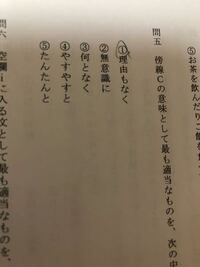 ⑤お茶を飲んだりご飯を
問五　傍線Cの意味として最も適当なものを、次の中
①理由もなく
②無意識に
③何となく
④やすやすと
⑤たんたんと
問六　空欄ⅰに入る文として最も適当なものを、